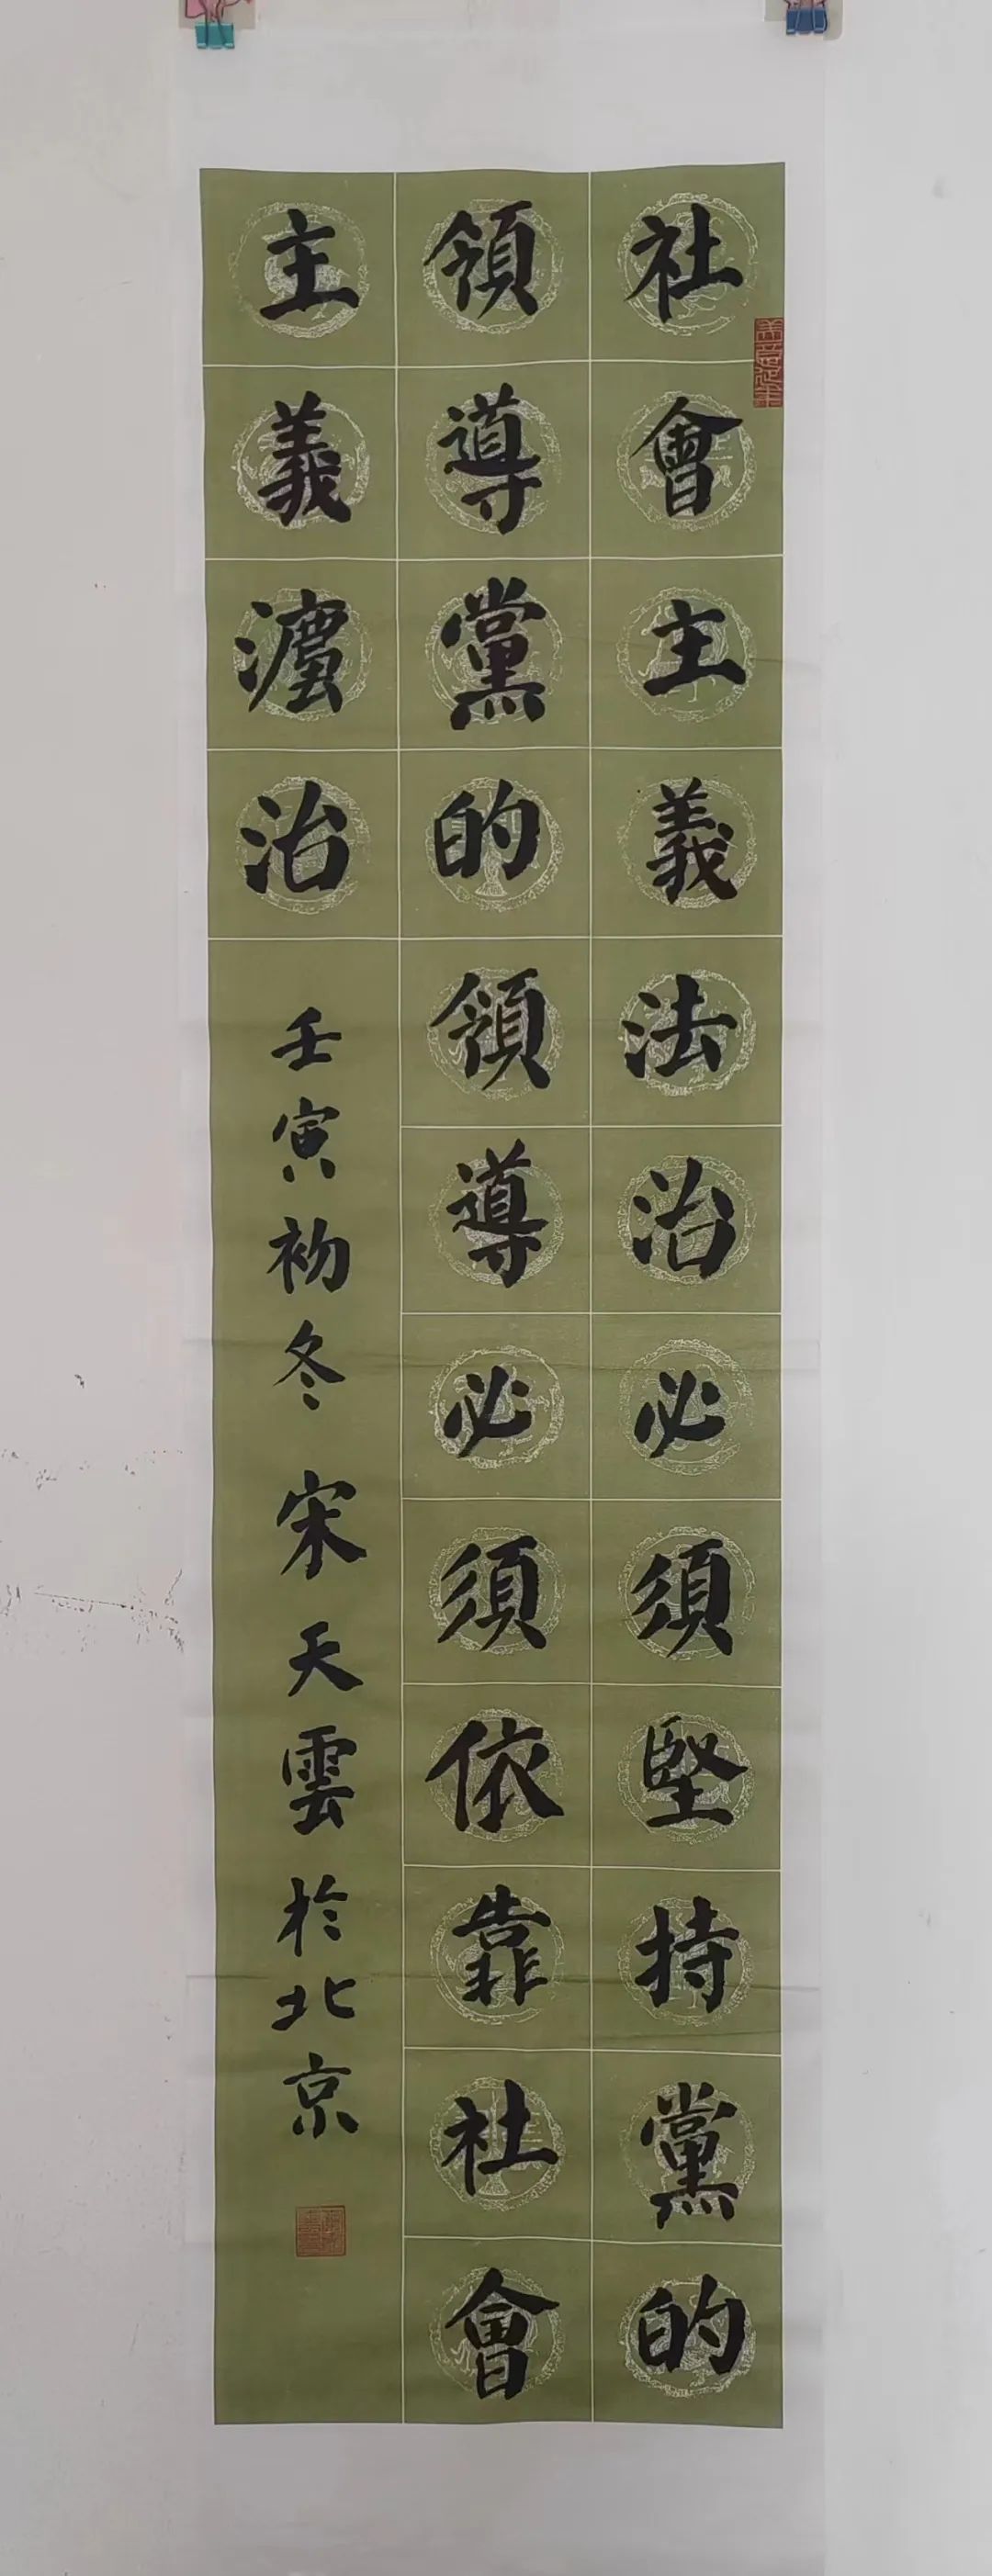 社會主義法治必須堅持黨的
領導黨的領導必須依靠社會
主義灋治
壬寅初冬 宋天雲於北京